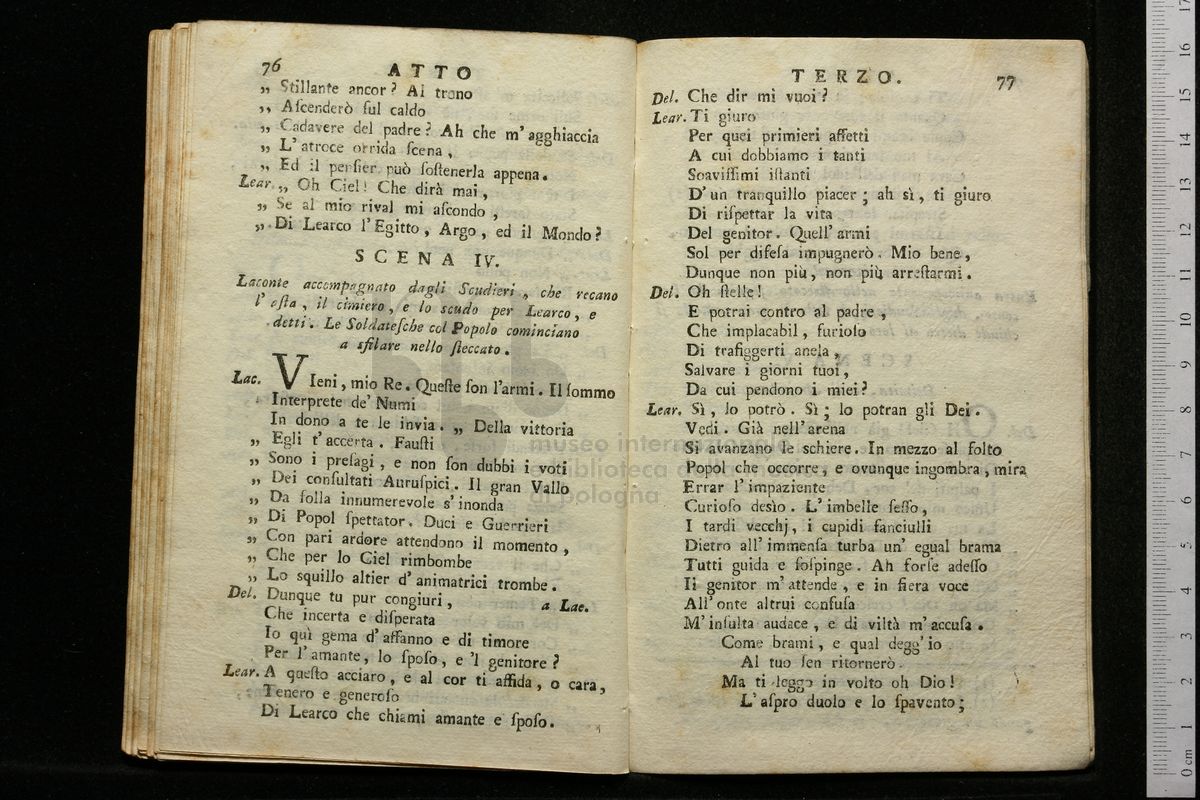 76 ATTO
„ Stillante ancor? Al trono
„ Aſcenderò ſul caldo
„ Cadavere del padre? Ah che m'agghiaccia
„ L'atroce orrida ſcena,
„ Ed il penſier può ſoſtenerla appena.
Lear. „ Oh Ciel! Che dirà mai,
„ Se al mio rival mi aſcondo,
„ Di Learco l'Egitto, Argo, ed il Mondo?
SCENA IV.
Laconte accompagnato dagli Scudieri, che recano
l'aſta, il cimiero, e lo scudo per Learco, e
detti. Le Soldateſche col Popolo cominciano
a sfilare nello ſteccato.
Lac. VIeni, mio Re. Queſte ſon l'armi. Il ſommo
Interprete de' Numi
In dono a te le invia. „ Della vittoria
„ Egli t'accerta. Fauſti
„ Sono i preſagi, e non ſon dubbi i voti
„ Dei conſultati Auruſpici. Il gran Vallo
„ Da folla innumerevole s'inonda
„ Di Popol ſpettator. Duci e Guerrieri
„ Con pari ardore attendono il momento,
„ Che per lo Ciel rimbombe
„ Lo squillo altier d'animatrici trombe.
Del. Dunque tu pur congiuri, a Lac.
Che incerta e diſperata
Io quì gema d'affanno e di timore
Per l'amante, lo ſpoſo, e 'l genitore?
Lear. A queſto acciaro, e al cor ti affida, o cara,
Tenero e generoſo
Di Learco che chiami amante e ſpoſo.
TERZO. 77
Del. Che dir mi vuoi?
Lear. Ti giuro
Per quei primieri affetti
A cui dobbiamo i tanti
Soaviſſimi iſtanti
D'un tranquillo piacer; ah sì, ti giuro
Di riſpettar la vita
Del genitor. Quell'armi
Sol per difeſa impugnerò. Mio bene,
Dunque non più, non più arreſtarmi.
Del. Oh ſtelle!
E potrai contro al padre,
Che implacabil, furioſo
Di trafiggerti anela,
Salvare i giorni tuoi,
Da cui pendono i miei?
Lear. Sì, lo potrò. Sì; lo potran gli Dei.
Vedi. Già nell'arena
Si avanzano le schiere. In mezzo al folto
Popol che occorre, e ovunque ingombra, mira
Errar l'impaziente
Curioſo desìo. L'imbelle ſeſſo,
I tardi vecchj, i cupidi fanciulli
Dietro all'immenſa turba un'egual brama
Tutti guida e ſoſpinge. Ah forſe adeſſo
Il genitor m'attende, e in fiera voce
All'onte altrui confuſa
M'inſulta audace, e di viltà m'accuſa.
Come brami, e qual degg'io
Al tuo ſen ritornerò.
Ma ti leggo in volto oh Dio!
L'aſpro duolo e lo ſpavento;